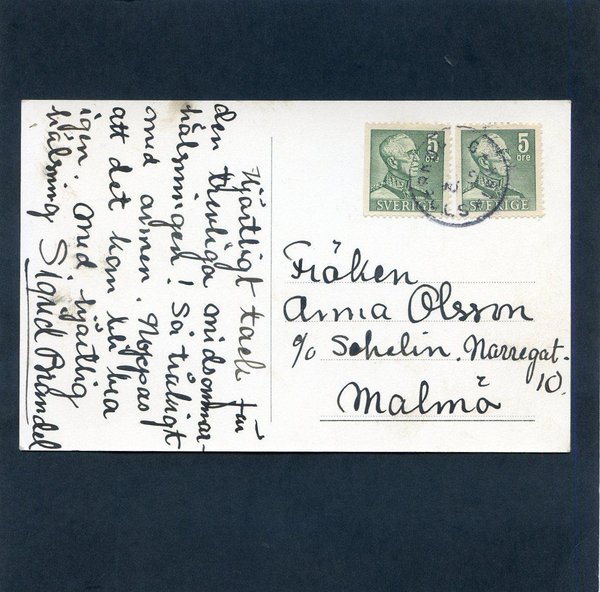 Hjärtligt tack för
den trevliga midsommar-
hälsningen! Så tråkigt
med armen. Hoppas
att det kan bli bra
igen. med hjärtlig
hälsning Sigrid Brandel
5
öre
SVERIGE
5
öre
SVERIGE
Fröken
Anna Olsson
c/o Schelin, Narregat.
10.
Malmö